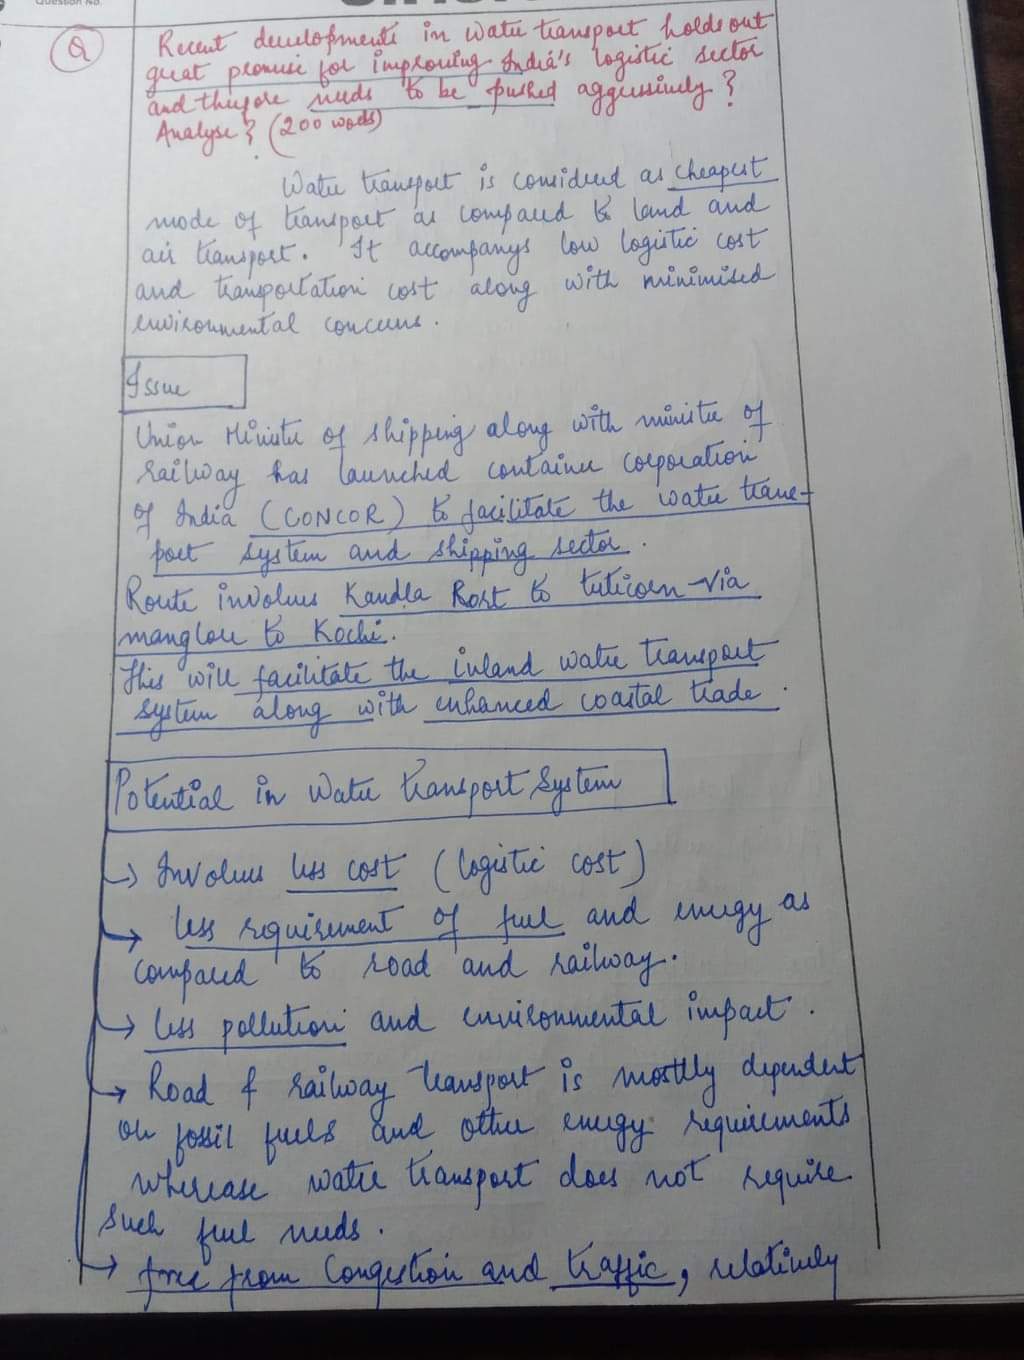 Question No.
Q
Recent developments in water transport holds out
great promise for improving India's logistic sector
and therefore needs to be pushed aggressively?
Analyse? (200 words)
Water transport is considered as cheapest
mode of transport as compared to land and
air transport. It accompanys low logistic cost
and transportation cost along with minimised
environmental concerns.
Issue
Union Minister of shipping along with minister of
railway has launched container corporation
of India (CONCOR) to facilitate the water trans-
port system and shipping sector.
Route involves Kandla Port to tuticorn-via
manglore to Kochi.
This will facilitate the inland water transport
system along with enhanced coastal trade.
Potential in Water transport System
→ Involves less cost (logistic cost)
→ less requirement of fuel and energy as
compared to road and railway.
→ less pollution and environmental impact.
→ Road & railway transport is mostly dependent
on fossil fuels and other energy requirements
wherease water transport does not require
such fuel needs.
→ free from Congestion and traffic, relatively